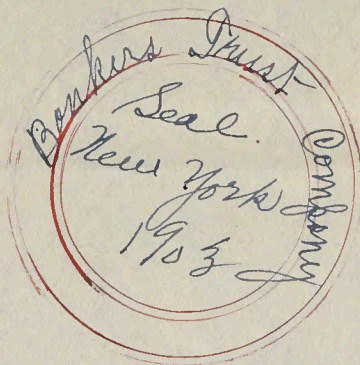 Bankers Trust Company
Seal.
New York
1903